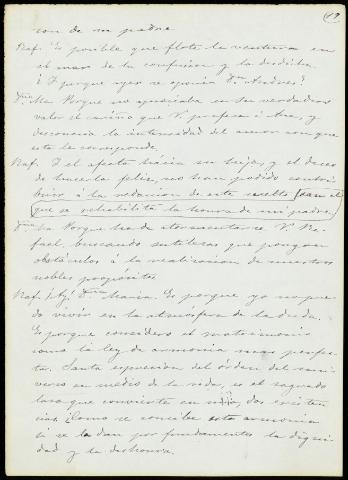 (49
con de mi padre
Raf. Es posible que flote la ventura en
el mar de la confusion y la desdicha
¿I porque ayer se oponia Dn. Andres?
Dña. Ma. Porque no apreciaba en su verdadero
valor el cariño que V. profesa á Ana, y
desconocia la intensidad del amor con que
esta le corresponde.
Raf. I el afecto hácia su hija, y el deseo
de hacerla feliz, no han podido contri
buir á la redaccion de este suelto
que se rehabilita la honra de mi padre.
Dña. Ma. Porque ha de atormentarse V. Ra
fael, buscando sutilezas que pongan
obstáculos á la realizacion de nuestros
nobles propósitos
Raf. ¡Ay! Dña. Maria. Es porque yo no pue
do vivir en la atmósfera de la duda.
Es porque considero el matrimonio
como la ley de armonia mas perfec
ta. Santa espresion del órden del uni
verso en medio de la vida, es el sagrado
lazo que convierte en una, dos existen
cias ¿Como se concibe esta armonia
si se la dan por fundamentos la digni
dad y la deshonra.